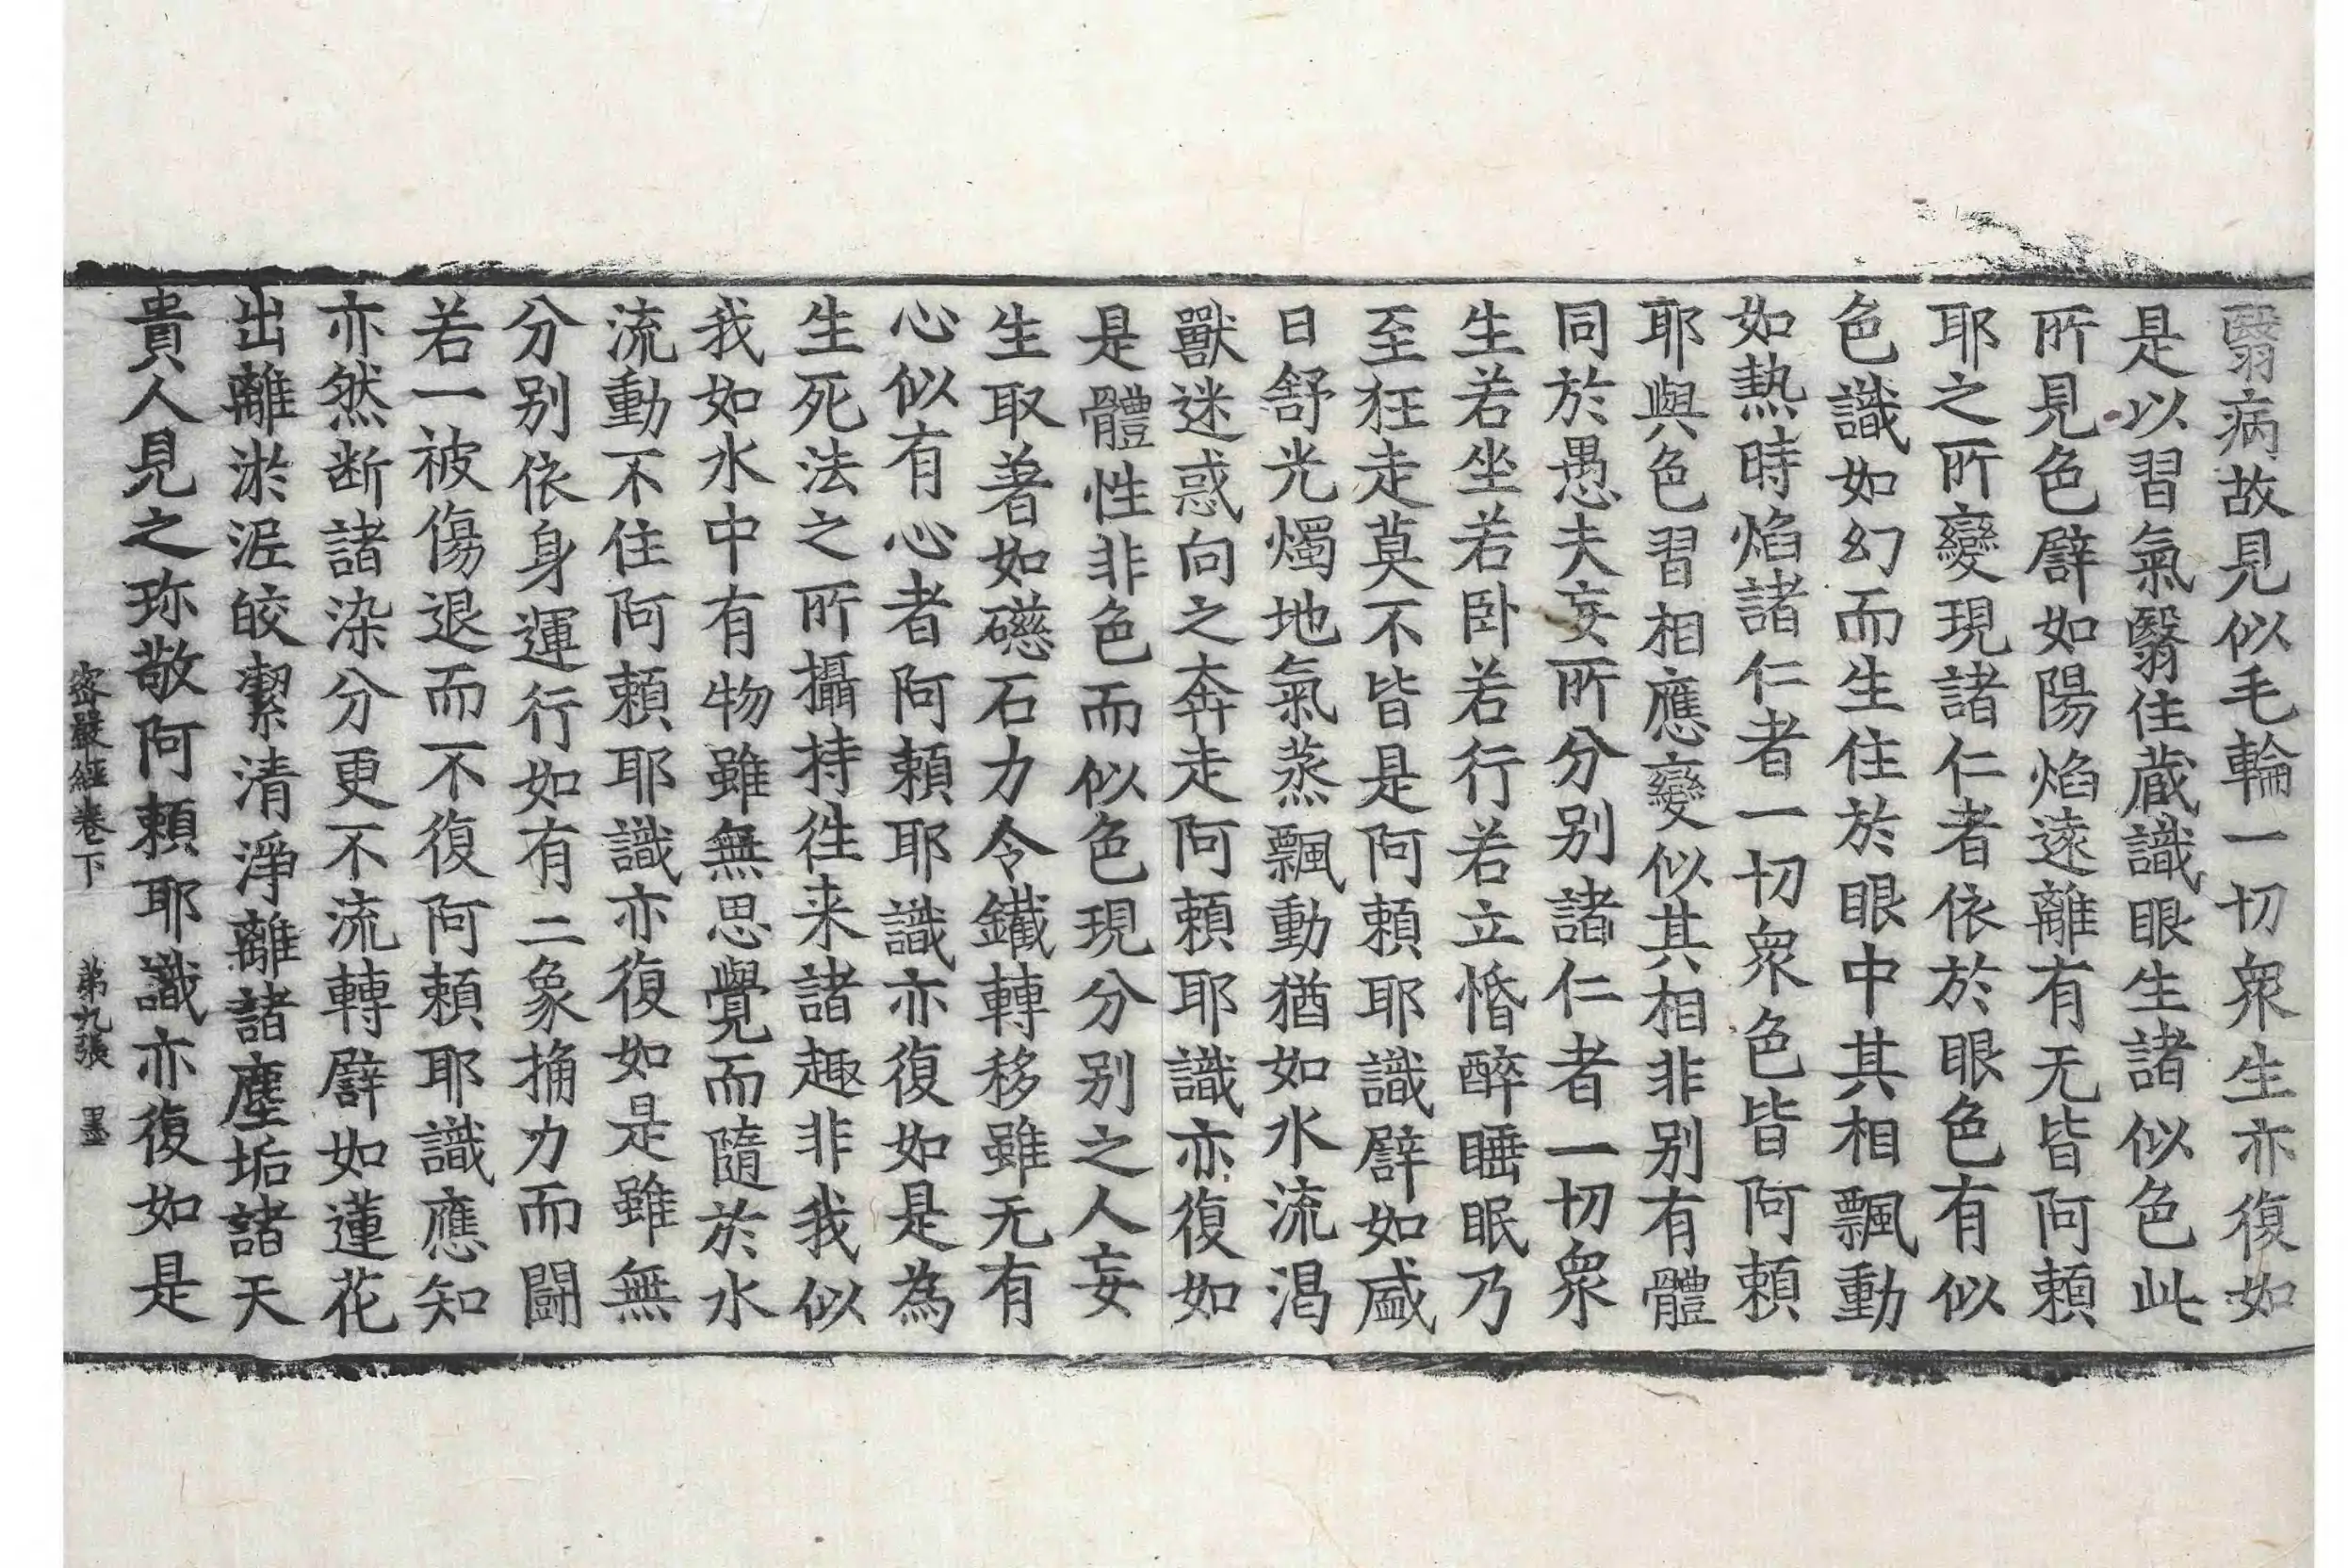 翳病故見似毛輪一切衆生亦復如
是以習氣翳住蔵識眼生諸似色此
所見色譬如陽焰遠離有无皆阿頼
耶之所變現諸仁者依於眼色有似
色識如幻而生住於眼中其相飄動
如熱時焰諸仁者一切衆色皆阿頼
耶與色習相應變似其相非别有體
同於愚夫妄所分别諸仁者一切衆
生若坐若卧若行若立惛醉睡眠乃
至狂走莫不皆是阿頼耶識譬如盛
日舒光燭地氣蒸飄動猶如水流渴
獸迷惑向之奔走阿頼耶識亦復如
是體性非色而似色現分别之人妄
生取著如礠石力令鐵轉移雖无有
心似有心者阿頼耶識亦復如是為
生死法之所攝持徃来諸趣非我似
我如水中有物雖無思覺而隨於水
流動不住阿頼耶識亦復如是雖無
分别依身運行如有二象捔力而闘
若一被傷退而不復阿頼耶識應知
亦然断諸染分更不流轉譬如蓮花
出離淤泥皎潔清淨離諸塵垢諸天
貴人見之珎敬阿頼耶識亦復如是
密嚴經卷下　第九張　墨